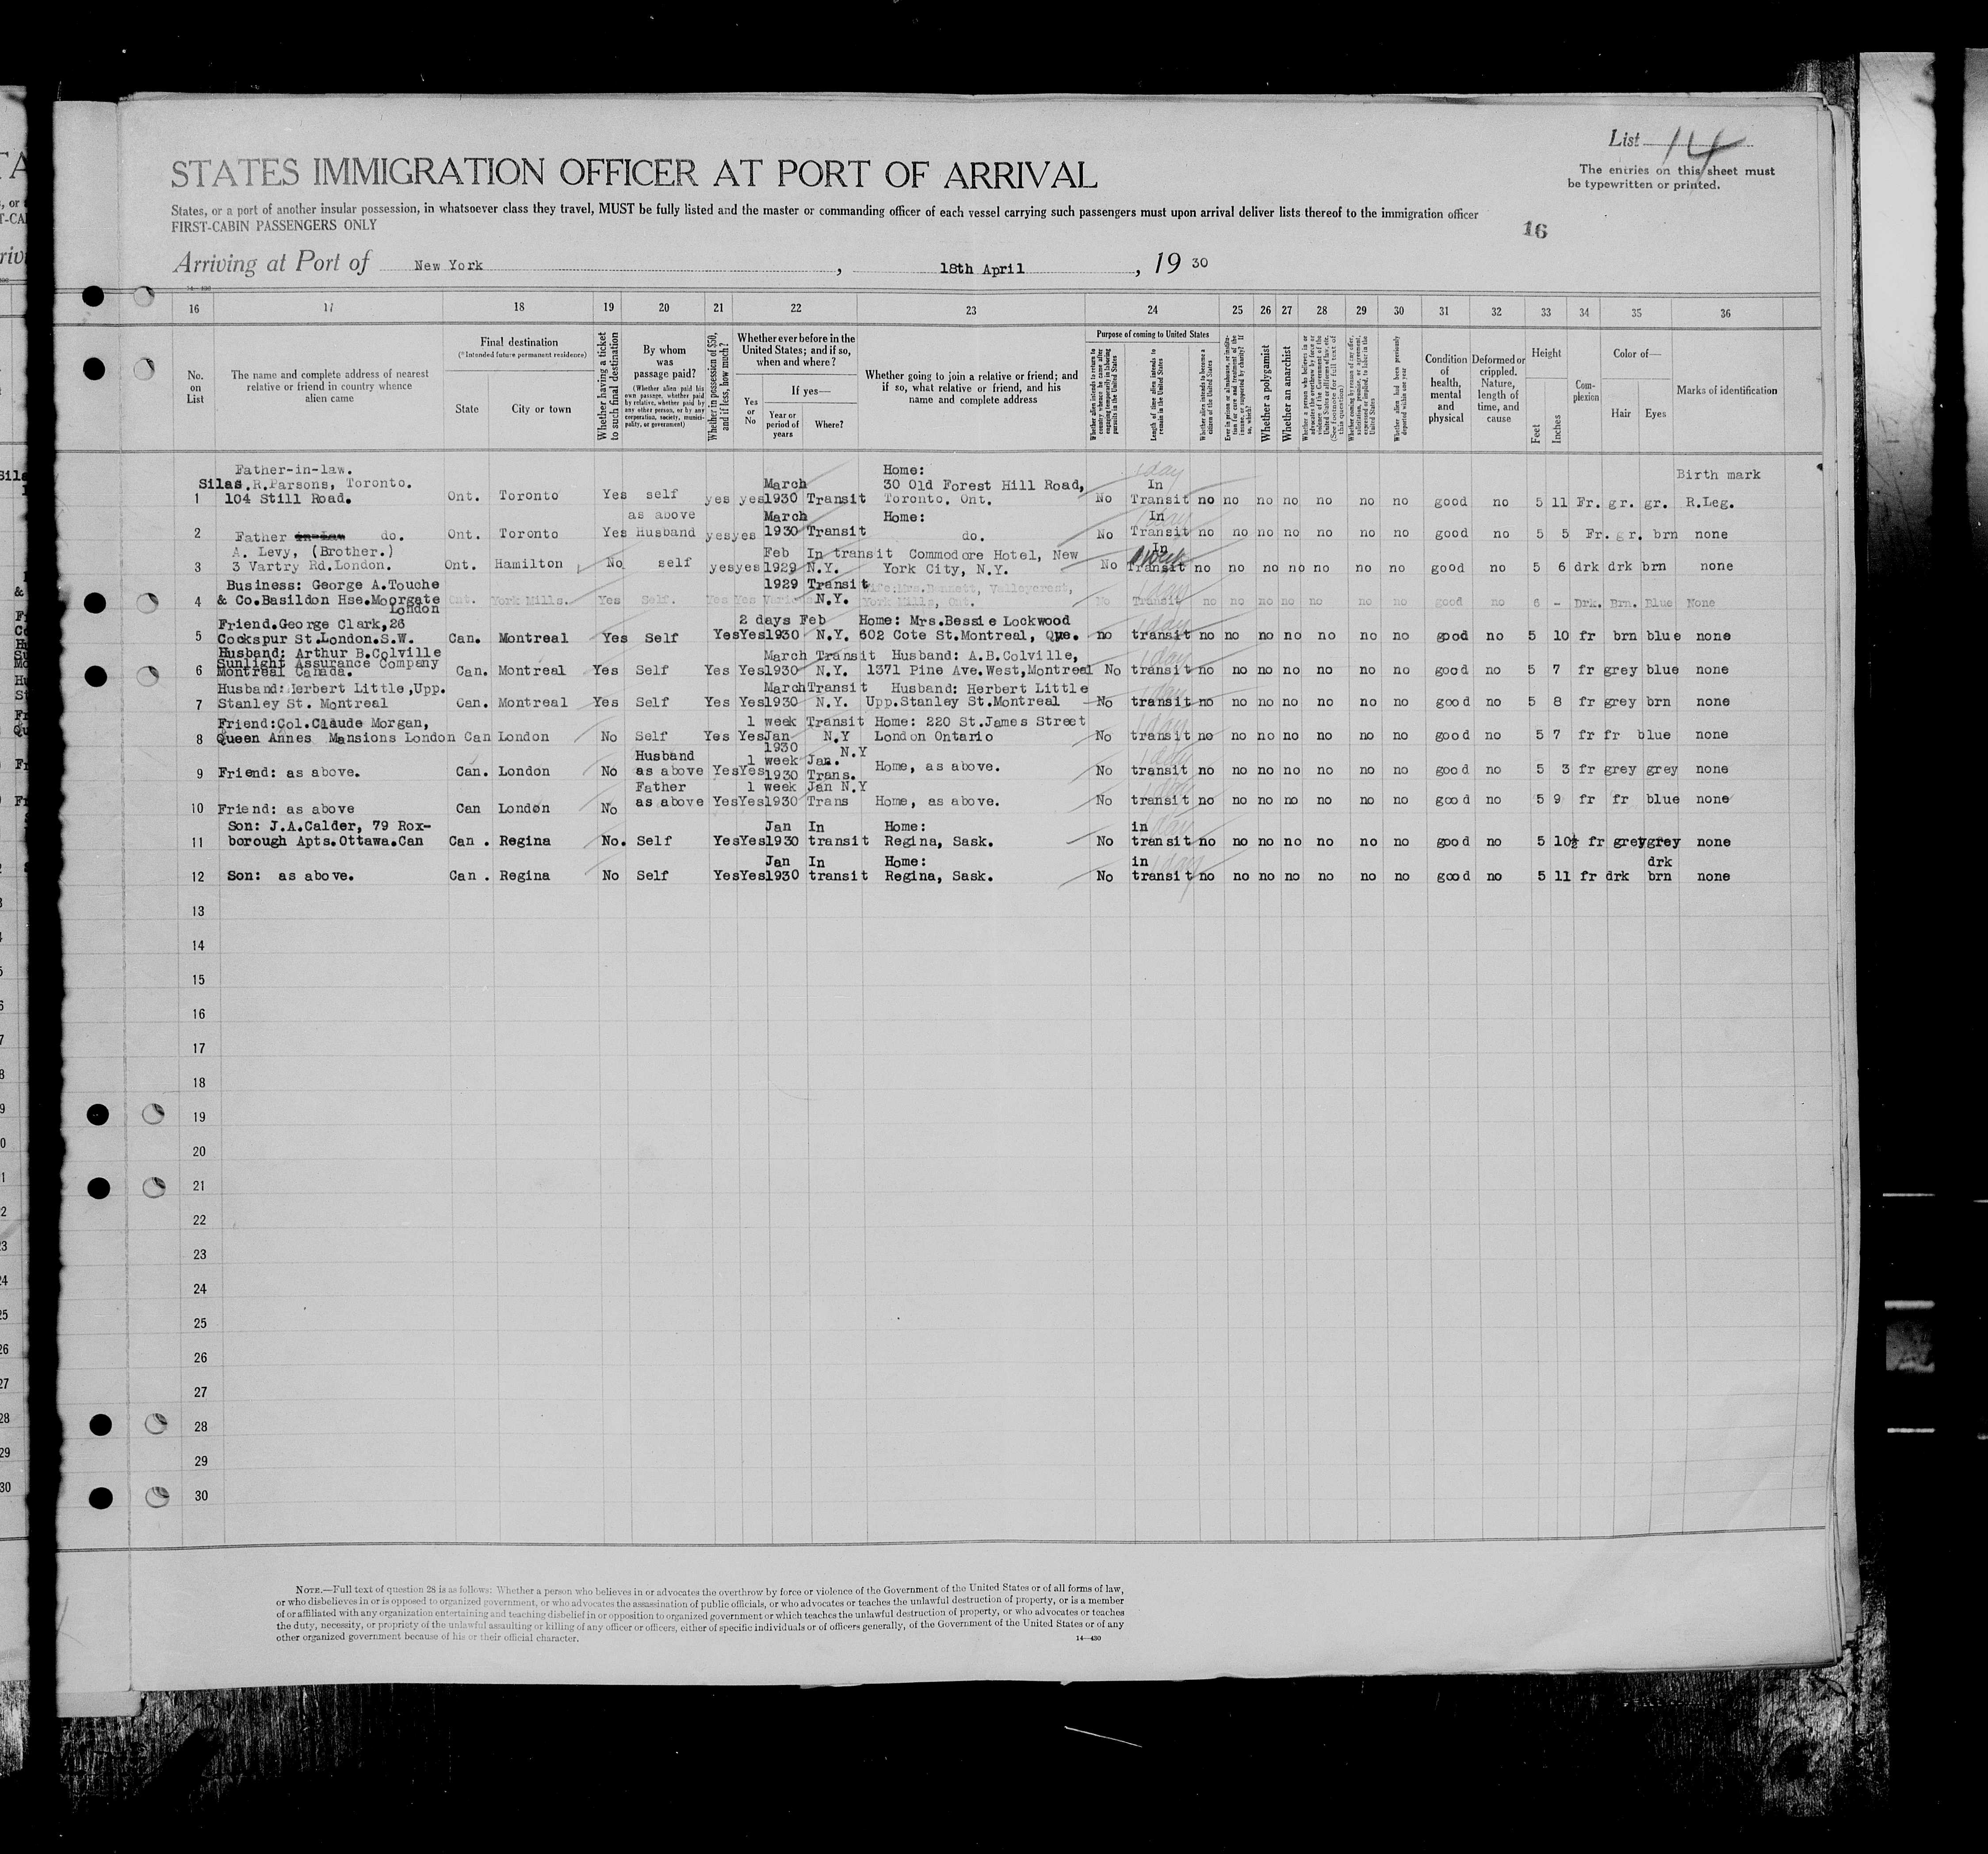 List 14
The entries on this sheet must
be typewritten or printed.
STATES IMMIGRATION OFFICER AT PORT OF ARRIVAL
States, or a port of another insular possession, in whatsoever class they travel, MUST be fully listed and the master or commanding officer of each vessel carrying such passengers must upon arrival deliver lists thereof to the immigration officer
FIRST-CABIN PASSENGERS ONLY
16
Arriving at Port of New York, 18th April, 19 30
16 17 18 19 20 21 22 23 24 25 26 27 28 29 30 31 32 33 34 35 36
No. on List
The name and complete address of nearest relative or friend in country whence alien came
Final destination
(*Intended future permanent residence)
State
City or town
Whether having a ticket to such final destination
By whom was passage paid?
(Whether alien paid his own passage, whether paid by relative, whether paid by any other person, or by any corporation, society, municipality, or government)
Whether in possession of $50, and if less, how much?
Whether ever before in the United States; and if so, when and where?
Yes or No
If yes—
Year or period of years
Where?
Whether going to join a relative or friend; and if so, what relative or friend, and his name and complete address
Purpose of coming to United States
Whether alien intends to return to country whence he came after engaging temporarily in laboring pursuits in the United States
Length of time alien intends to remain in the United States
Whether alien intends to become a citizen of the United States
Ever in prison or almshouse, or institution for care and treatment of the insane, or supported by charity? If so, which?
Whether a polygamist
Whether an anarchist
Whether a person who believes in or advocates the overthrow by force or violence of the Government of the United States or all forms of law, etc. (See footnote for full text of this question)
Whether coming by reason of any offer, solicitation, promise, or agreement, expressed or implied, to labor in the United States
Whether alien had been previously deported within one year
Condition of health, mental and physical
Deformed or crippled. Nature, length of time, and cause
Height
Feet
Inches
Complexion
Color of—
Hair
Eyes
Marks of identification
Father-in-law. Home: 1 day Birth mark
Silas.R.Parsons, Toronto. March 30 Old Forest Hill Road, In
1 104 Still Road. Ont. Toronto Yes self yes yes 1930 Transit Toronto. Ont. No Transit no no no no no no no good no 5 11 Fr. gr. gr. R.Leg.
as above March Home: In
2 Father in-law do. Ont. Toronto Yes Husband yes yes 1930 Transit do. No Transit no no no no no no no good no 5 5 Fr. gr. brn none
A. Levy, (Brother.) Feb In transit Commodore Hotel, New In 1 week
3 3 Vartry Rd.London. Ont. Hamilton No self yes yes 1929 N.Y. York City, N.Y. No Transit no no no no no no no good no 5 6 drk drk brn none
Business: George A.Touche 1929 Transit Wife:Mrs.Bennett, Valleycrest, day
4 & Co.Basildon Hse.Moorgate London Ont. York Mills. Yes Self. Yes Yes N.Y. York Mills, Ont. No Transit no no no no no no no good no 6 - Drk. Brn. Blue None
Friend.George Clark,26 2 days Feb Home: Mrs.Bessie Lockwood 1 day
5 Cockspur St.London.S.W. Can. Montreal Yes Self Yes Yes 1930 N.Y. 602 Cote St.Montreal, Que. no transit no no no no no no no good no 5 10 fr brn blue none
Husband: Arthur B.Colville
Sunlight Assurance Company March Transit Husband: A.B.Colville, 1 day
6 Montreal Canada. Can. Montreal Yes Self Yes Yes 1930 N.Y. 1371 Pine Ave.West,Montreal No transit no no no no no no no good no 5 7 fr grey blue none
Husband:Herbert Little,Upp. March Transit Husband: Herbert Little 1 day
7 Stanley St. Montreal Can. Montreal Yes Self Yes Yes 1930 N.Y. Upp.Stanley St.Montreal No transit no no no no no no no good no 5 8 fr grey brn none
Friend:Col.Claude Morgan, 1 week Transit Home: 220 St.James Street 1 day
8 Queen Annes Mansions London Can London No Self Yes Yes Jan 1930 N.Y London Ontario No transit no no no no no no no good no 5 7 fr fr blue none
Husband 1 week Jan. N.Y 1 day
9 Friend: as above. Can. London No as above Yes Yes 1930 Trans. Home, as above. No transit no no no no no no no good no 5 3 fr grey grey none
Father 1 week Jan N.Y 1 day
10 Friend: as above Can London No as above Yes Yes 1930 Trans Home, as above. No transit no no no no no no no good no 5 9 fr fr blue none
Son: J.A.Calder, 79 Rox- Jan In Home: in 1 day
11 borough Apts.Ottawa.Can Can . Regina No. Self Yes Yes 1930 transit Regina, Sask. No transit no no no no no no no good no 5 10½ fr grey grey none
Jan In Home: in 1 day drk
12 Son: as above. Can . Regina No Self Yes Yes 1930 transit Regina, Sask. No transit no no no no no no no good no 5 11 fr drk brn none
13
14
15
16
17
18
19
20
21
22
23
24
25
26
27
28
29
30
NOTE.—Full text of question 28 is as follows: Whether a person who believes in or advocates the overthrow by force or violence of the Government of the United States or of all forms of law,
or who disbelieves in or is opposed to organized government, or who advocates the assassination of public officials, or who advocates or teaches the unlawful destruction of property, or is a member
of or affiliated with any organization entertaining and teaching disbelief in or opposition to organized government or which teaches the unlawful destruction of property, or who advocates or teaches
the duty, necessity, or propriety of the unlawful assaulting or killing of any officer or officers, either of specific individuals or of officers generally, of the Government of the United States or of any
other organized government because of his or their official character.
14—430